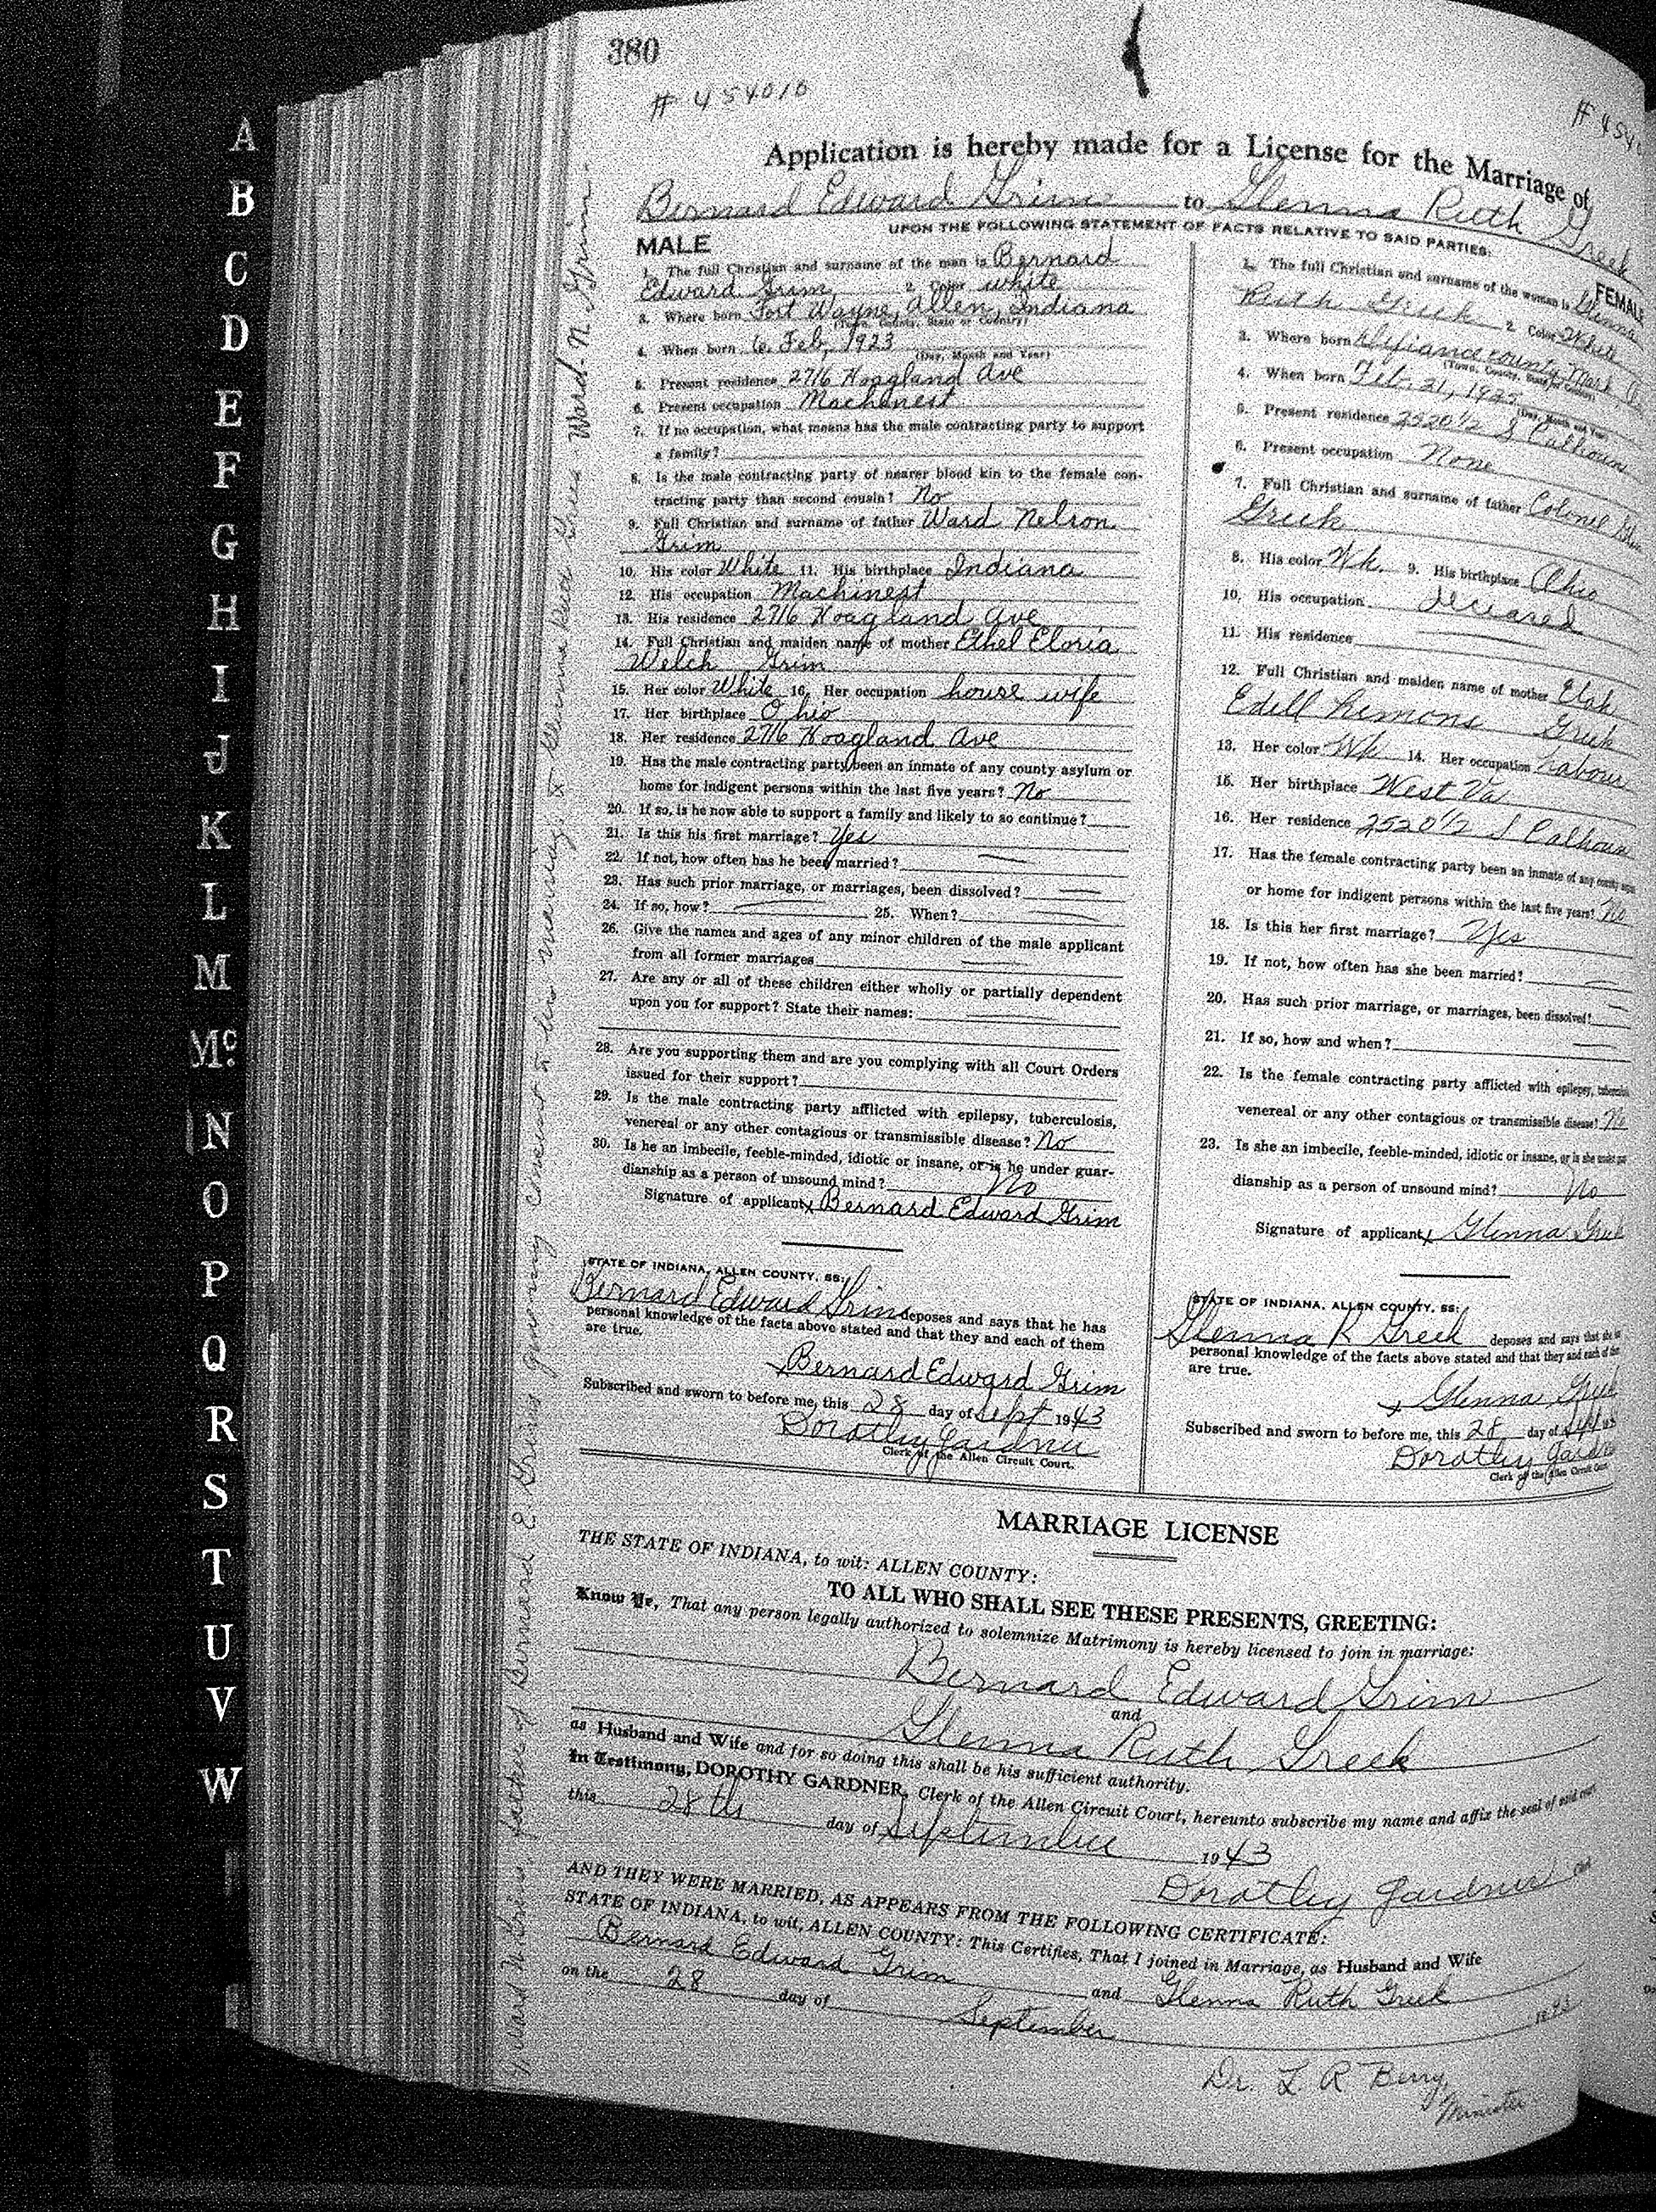 380
# 454010
# 454
Application is hereby made for a License for the Marriage of
Bernard Edward Grim to Glenna Ruth Greek
UPON THE FOLLOWING STATEMENT OF FACTS RELATIVE TO SAID PARTIES:
MALE
1. The full Christian and surname of the man is Bernard
Edward Grim 2. Color white
3. Where born Fort Wayne, Allen, Indiana
(Town, County, State or Country)
4. When born 6 Feb, 1923
(Day, Month and Year)
5. Present residence 2716 Hoagland Ave
6. Present occupation Machinest
7. If no occupation, what means has the male contracting party to support
a family?
8. Is the male contracting party of nearer blood kin to the female con-
tracting party than second cousin? No
9. Full Christian and surname of father Ward Nelson
Grim
10. His color White 11. His birthplace Indiana
12. His occupation Machinest
13. His residence 2716 Hoagland Ave
14. Full Christian and maiden name of mother Ethel Eloria
Welch Grim
15. Her color White 16. Her occupation house wife
17. Her birthplace Ohio
18. Her residence 2716 Hoagland Ave
19. Has the male contracting party been an inmate of any county asylum or
home for indigent persons within the last five years? No
20. If so, is he now able to support a family and likely to so continue?
21. Is this his first marriage? Yes
22. If not, how often has he been married?
23. Has such prior marriage, or marriages, been dissolved?
24. If so, how? 25. When?
26. Give the names and ages of any minor children of the male applicant
from all former marriages
27. Are any or all of these children either wholly or partially dependent
upon you for support? State their names:
28. Are you supporting them and are you complying with all Court Orders
issued for their support?
29. Is the male contracting party afflicted with epilepsy, tuberculosis,
venereal or any other contagious or transmissible disease? No
30. Is he an imbecile, feeble-minded, idiotic or insane, or is he under guar-
dianship as a person of unsound mind? No
Signature of applicant x Bernard Edward Grim
STATE OF INDIANA, ALLEN COUNTY, SS:
Bernard Edward Grim deposes and says that he has
personal knowledge of the facts above stated and that they and each of them
are true.
x Bernard Edward Grim
Subscribed and sworn to before me, this 28 day of Sept 1943
Dorothy Gardner
Clerk of the Allen Circuit Court.
FEMALE
1. The full Christian and surname of the woman is Glenna
Ruth Greek 2. Color White
3. Where born Defiance county, Mark
(Town, County, State or Country)
4. When born Feb. 21, 192
(Day, Month and Year)
5. Present residence 2520 1/2 S Calhoun
6. Present occupation None
7. Full Christian and surname of father Colonel
Greek
8. His color Wh. 9. His birthplace Ohio
10. His occupation deceased
11. His residence
12. Full Christian and maiden name of mother
Edell Lemons Greek
13. Her color Wh 14. Her occupation Labour
15. Her birthplace West Va
16. Her residence 2520 1/2 S Calhoun
17. Has the female contracting party been an inmate of any county
or home for indigent persons within the last five years? No
18. Is this her first marriage? Yes
19. If not, how often has she been married?
20. Has such prior marriage, or marriages, been dissolved?
21. If so, how and when?
22. Is the female contracting party afflicted with epilepsy,
venereal or any other contagious or transmissible disease? No
23. Is she an imbecile, feeble-minded, idiotic or insane, or is she under
dianship as a person of unsound mind? No
Signature of applicant x Glenna Greek
STATE OF INDIANA, ALLEN COUNTY, SS:
Glenna R Greek deposes and says that she
personal knowledge of the facts above stated and that they and each of
are true.
x Glenna Greek
Subscribed and sworn to before me, this 28 day of Sept
Dorothy Gardner
Clerk of the Allen Circuit Court
MARRIAGE LICENSE
THE STATE OF INDIANA, to wit: ALLEN COUNTY:
TO ALL WHO SHALL SEE THESE PRESENTS, GREETING:
Know Ye, That any person legally authorized to solemnize Matrimony is hereby licensed to join in marriage:
Bernard Edward Grim
and
Glenna Ruth Greek
as Husband and Wife and for so doing this shall be his sufficient authority.
In Testimony, DOROTHY GARDNER, Clerk of the Allen Circuit Court, hereunto subscribe my name and affix the seal of said court
this 28th day of September 1943
Dorothy Gardner Clerk
AND THEY WERE MARRIED, AS APPEARS FROM THE FOLLOWING CERTIFICATE:
STATE OF INDIANA, to wit, ALLEN COUNTY: This Certifies, That I joined in Marriage, as Husband and Wife
Bernard Edward Grim and Glenna Ruth Greek
on the 28 day of September 1943
Dr. L. R Berry,
Minister
Ward N. Grim, father of Bernard E. Grim giving consent to his marriage to Glenna Ruth Greek Ward. N. Grim.
A
B
C
D
E
F
G
H
I
J
K
L
M
Mc.
N
O
P
Q
R
S
T
U
V
W